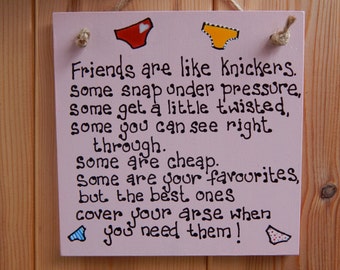 Friends are like Knickers.
some snap under pressure,
some get a little twisted,
some you can see right
through.
some are cheap.
Some are your favourites,
but the best ones
cover your arse when
you need them!